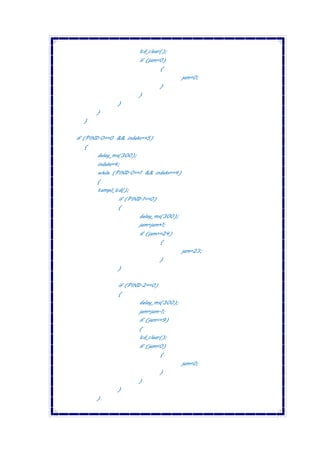 lcd_clear();
if (jam<0)
{
jam=0;
}
}
}
}
}
if (PIND.0==0 && indeks==5)
{
delay_ms(300);
indeks=4;
while (PIND.0==1 && indeks==4)
{
tampil_lcd();
if (PIND.1==0)
{
delay_ms(300);
jam=jam+1;
if (jam==24)
{
jam=23;
}
}
if (PIND.2==0)
{
delay_ms(300);
jam=jam-1;
if (jam==9)
{
lcd_clear();
if (jam<0)
{
jam=0;
}
}
}
}